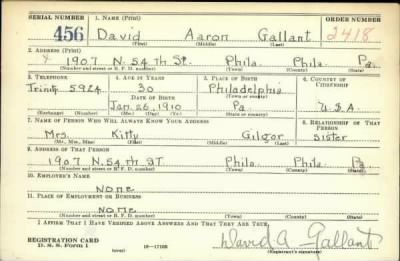 SERIAL NUMBER 1. NAME (Print) ORDER NUMBER
456 David Aaron Gallant 2418
(First) (Middle) (Last)
2. ADDRESS (Print)
1907 N. 54 th St. Phila. Phila. Pa.
(Number and street or R. F. D. number) (Town) (County) (State)
3. TELEPHONE 4. AGE IN YEARS 5. PLACE OF BIRTH 6. COUNTRY OF CITIZENSHIP
Trinity 5924 30 Philadelphia
DATE OF BIRTH (Town or county)
Jan. 26, 1910 Pa U.S.A.
(Exchange) (Number) (Mo.) (Day) (Yr.) (State or country)
7. NAME OF PERSON WHO WILL ALWAYS KNOW YOUR ADDRESS 8. RELATIONSHIP OF THAT PERSON
Mrs. Kitty Gilgor Sister
(Mr., Mrs., Miss) (First) (Middle) (Last)
9. ADDRESS OF THAT PERSON
1907 N. 54 th ST. Phila. Phila Pa
(Number and street or R. F. D. number) (Town) (County) (State)
10. EMPLOYER'S NAME
NONE
11. PLACE OF EMPLOYMENT OR BUSINESS
NONE
(Number and street or R. F. D. number) (Town) (County) (State)
I AFFIRM THAT I HAVE VERIFIED ABOVE ANSWERS AND THAT THEY ARE TRUE.
REGISTRATION CARD
D. S. S. Form 1 (over) 16—17105 David A. Gallant
(Registrant's signature)